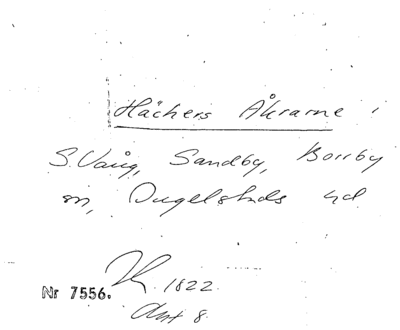 Hächers Åkrarne i
S. Vång, Sandby, Borrby
sn, Ingelstads hd
Nr 7556. 1822
Akt 8